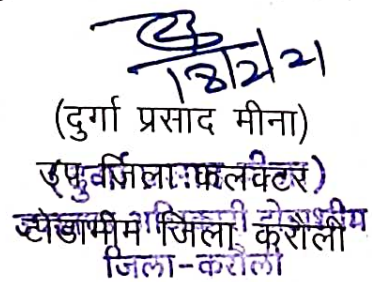 18/2/21
(दुर्गा प्रसाद मीना)
जिला कलक्टर)
टोडाभीम जिला करौली
जिला-करौली